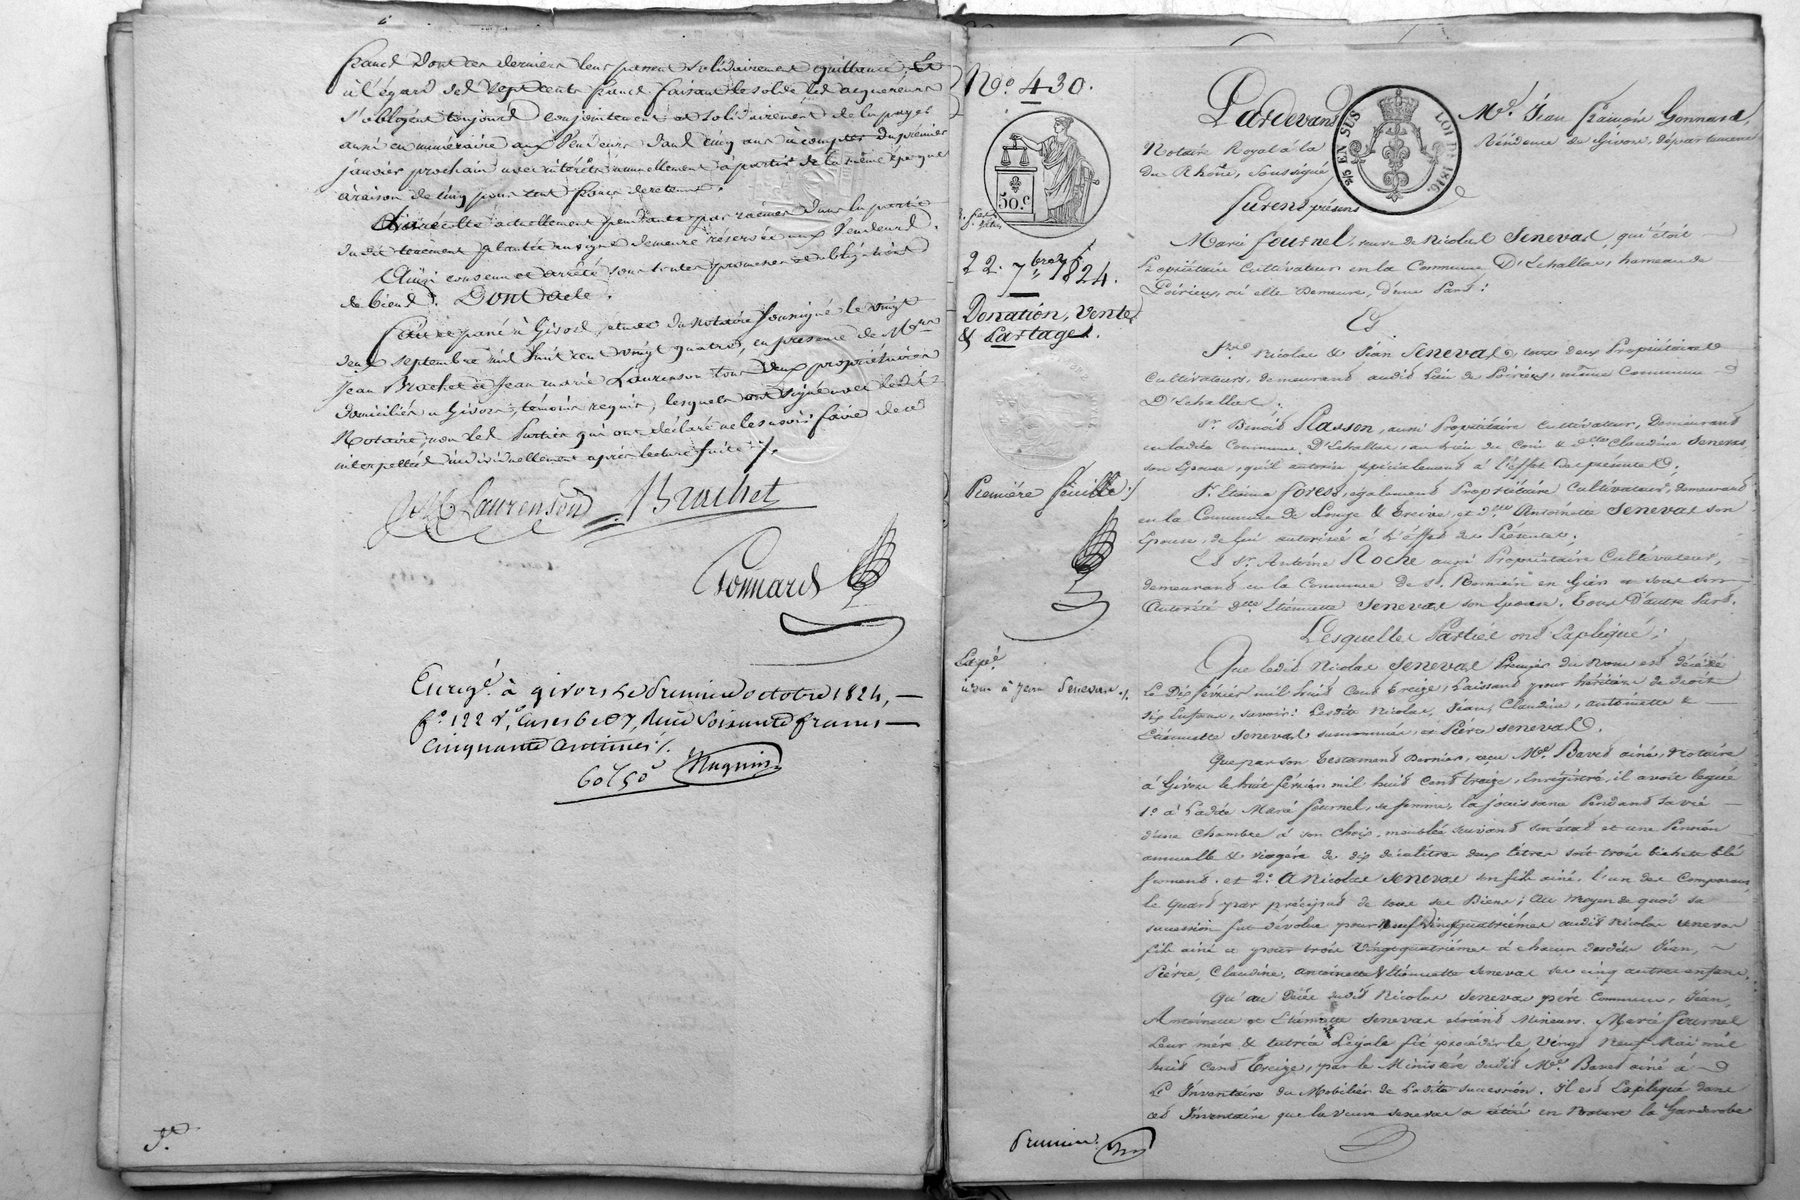 francs dont ces derniers leur passent solidairement quittance. Et
à l'égard des sept cents francs faisant le solde les acquéreurs
s'obligent toujours conjointement et solidairement de les payer
aussi en numéraire aux Vendeurs dans cinq ans à compter du premier
janvier prochain avec intérêts annuellement à partir de la même époque
à raison de cinq pour cent sans retenue.
La récolte actuellement pendante par racines dans la partie
du dit tènement plantée en vigne demeure réservée aux Vendeurs.
Ainsi convenu et arrêté sous toutes promesses et obligations
de biens. Dont acte.
fait et passé à Givors, étude du Notaire soussigné le vingt
deux septembre mil huit cent vingt quatre, en présence de Mrs
Jean Brachet et Jean marie Laurenson tous deux propriétaires
domiciliés à Givors, témoins requis, lesquels ont signé avec le dit
Notaire, non les Parties qui ont déclaré ne le savoir faire de ce
interpellés individuellement après lecture faite ./.
JM Laurenson Brachet
Gonnard
Enregé. à givors le Premier octobre 1824,
fo. 122 Vo. Cases 6 et 7, Reçu Soixante francs
Cinquante Centimes ./.
60f 50c Magnin
No. 430.
50.c
22. 7bre 1824.
Donation, Vente
& Partage.
Première feuille ./
Expé.
à Jean Seneval ./.
Premier.
2/5 EN SUS LOI DE 1816.
Pardevant Me. Jean François Gonnard,
Notaire Royal à la Résidence de Givors, département
du Rhône, soussigné,
furent présens
Marie fournel, veuve de Nicolas Seneval, qui était
Propriétaire Cultivateur en la Commune D'Echallas, hameau de
Poirieux, où elle Demeure, d'une Part;
Et
Srs. Nicolas & Jean Seneval, tous deux Propriétaires
Cultivateurs, demeurant audit Lieu de Poirieux, même Commune
D'Echallas;
Sr. Benoît Rasson, aussi Propriétaire Cultivateur, Demeurant
en ladite Commune D'Echallas, au Lieu du & dlle Claudine Seneval,
son Epouse, qu'il autorise spécialement à l'effet des présentes;
Sr. Etienne forest, également Propriétaire Cultivateur, demeurant
en la Commune de Longe & Treive, et dlle Antoinette Seneval son
Epouse, de Lui autorisée à L'effet des Présentes;
Et Sr. Antoine Roche aussi Propriétaire Cultivateur,
demeurant en la Commune de St. Romain en Gier et sous son
Autorité dlle Etiennette Seneval son Epouse, Tous D'autre Part.
Lesquelles Parties ont Expliqué;
Que ledit Nicolas Seneval Premier du Nom est décédé
Le Dix février mil huit Cent Treize, Laissant pour héritiers de droit
Six Enfans, savoir: Lesdits Nicolas, Jean, Claudine, Antoinette &
Etiennette Seneval susnommés, et Pierre Seneval.
Que par son Testament Dernier, reçu Me. Bavet ainé, Notaire
à Givors le huit février mil huit Cent treize, Enregistré, il avoit légué
1o. à Ladite Marie fournel, sa femme, la jouissance Pendant sa vie
d'une Chambre à son Choix, meublée suivant son état et une Pension
annuelle & viagère de dix décalitres deux litres soit trois bichets blé
froment. et 2o. A Nicolas Seneval son fils ainé, l'un des Comparans,
le Quart par préciput de tous ses Biens; Au Moyen de quoi sa
succession fut dévolue pour neuf Vingtquatrièmes audit Nicolas Seneval
fils ainé et pour trois Vingtquatrièmes à chacun desdits Jean,
Pierre, Claudine, Antoinette & Etiennette Seneval ses cinq autres enfans.
Qu'au Décès dudit Nicolas Seneval père Commun, Jean,
Antoinette et Etiennette Seneval étant Mineurs, Marie fournel
Leur mère & tutrice Légale fit procéder le Vingt Neuf Mai mil
huit Cent Treize, par le Ministère dudit Me. Bavet ainé à
L'Inventaire du Mobilier de Ladite Succession. Il est Expliqué dans
cet Inventaire que la veuve Seneval a retiré en Nature la Garderobe